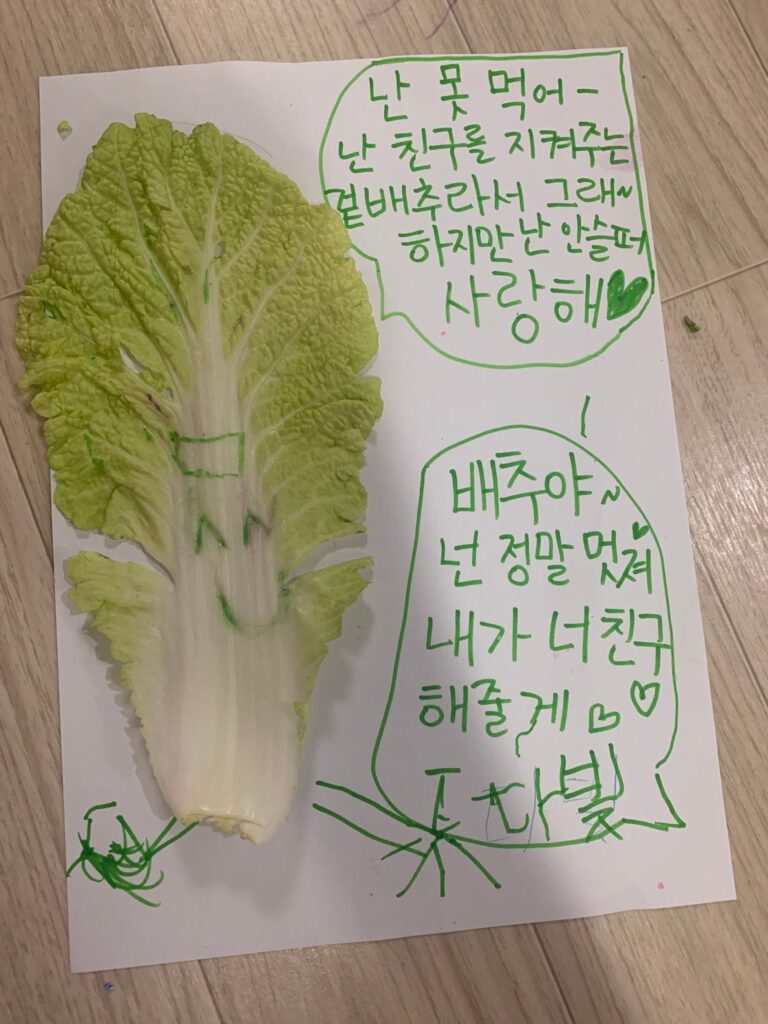 난 못 먹어-
난 친구를 지켜주는
겉배추라서 그래~
하지만 난 안슬퍼
사랑해♥
배추야~
넌 정말 멋져
내가 너 친구
해줄게♡♡
다빛